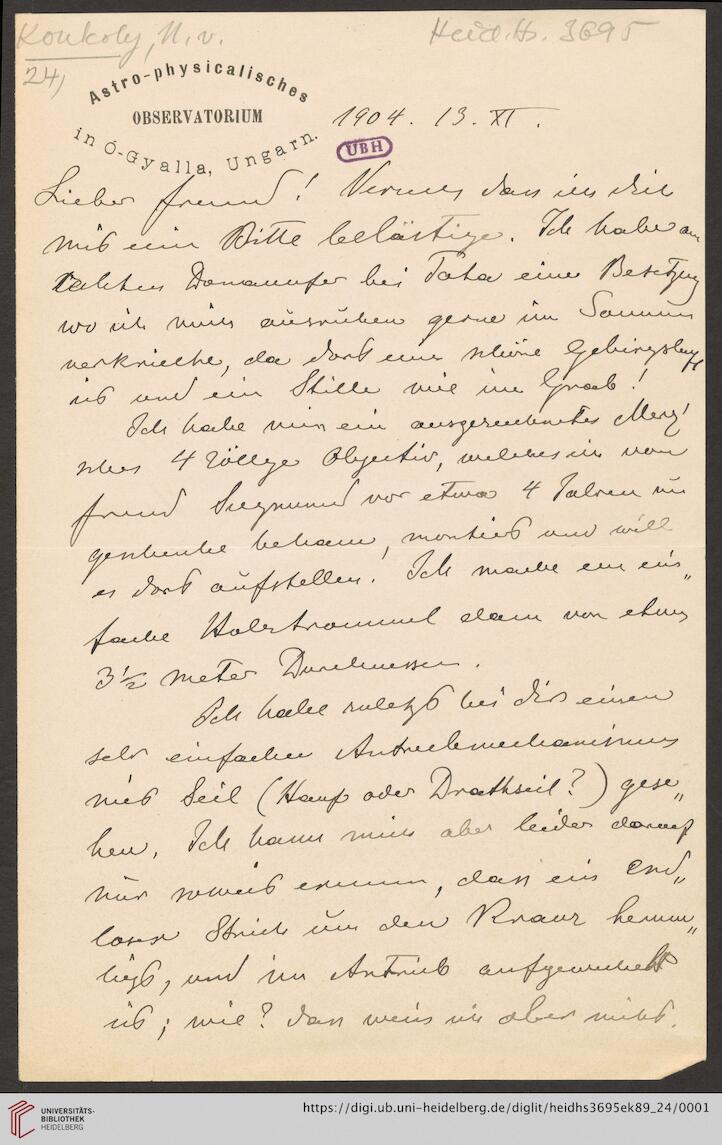 Konkoly, N. v.
Heid. Hs. 3695
24)
Astro-physicalisches
OBSERVATORIUM
in Ó-Gyalla, Ungarn.
1904. 13. XI.
UBH
Lieber Freund! Verzeih dass ich dich
mit ein Bitte belästige. Ich habe am
rechten Donauufer bei Tata eine Besitzung
wo ich mich ausruhen gerne im Sommer
verkrieche, da dort eine schöne Gebirgsluft
ist und ein Stille wie im Grab!
Ich habe nun ein ausgezeichnetes Merz'
sches 4 zöllige Objectiv, welches ich vom
Freund Siegmund vor etwa 4 Jahren im
geschenke bekam, montiert und will
es dort aufstellen! Ich mache ein ein„
fache Holztrommel dazu von etwa
3 1/2 meter Durchmesser.
Ich habe zuletzt bei dir einen
sehr einfachen Antriebmechanismus
mit Seil (Hanf oder Drathseil?) gese„
hen. Ich kann mich aber leider darauf
nur soweit erinnern, dass ein End„
loser Strick um den Kranz herum„
liegt, und im Antrieb aufgewickelt
ist; wie? dass weis ich aber nicht.
UNIVERSITÄTS-
BIBLIOTHEK
HEIDELBERG
https://digi.ub.uni-heidelberg.de/diglit/heidhs3695ek89_24/0001